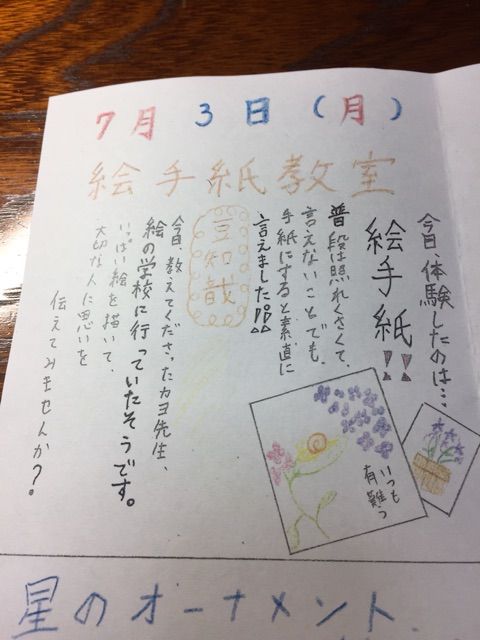 7月 3日(月)
絵手紙教室
今日、体験したのは…
絵手紙!!
普段は照れくさくて、
言えないことでも、
手紙にすると素直に
言えました!!
いつも
有難う
豆知哉
今日、教えてくださったカヨ先生、
絵の学校に行っていたそうです。
いっぱい絵を描いて、
大切な人に思いを
伝えてみませんか?
星のオーナメント